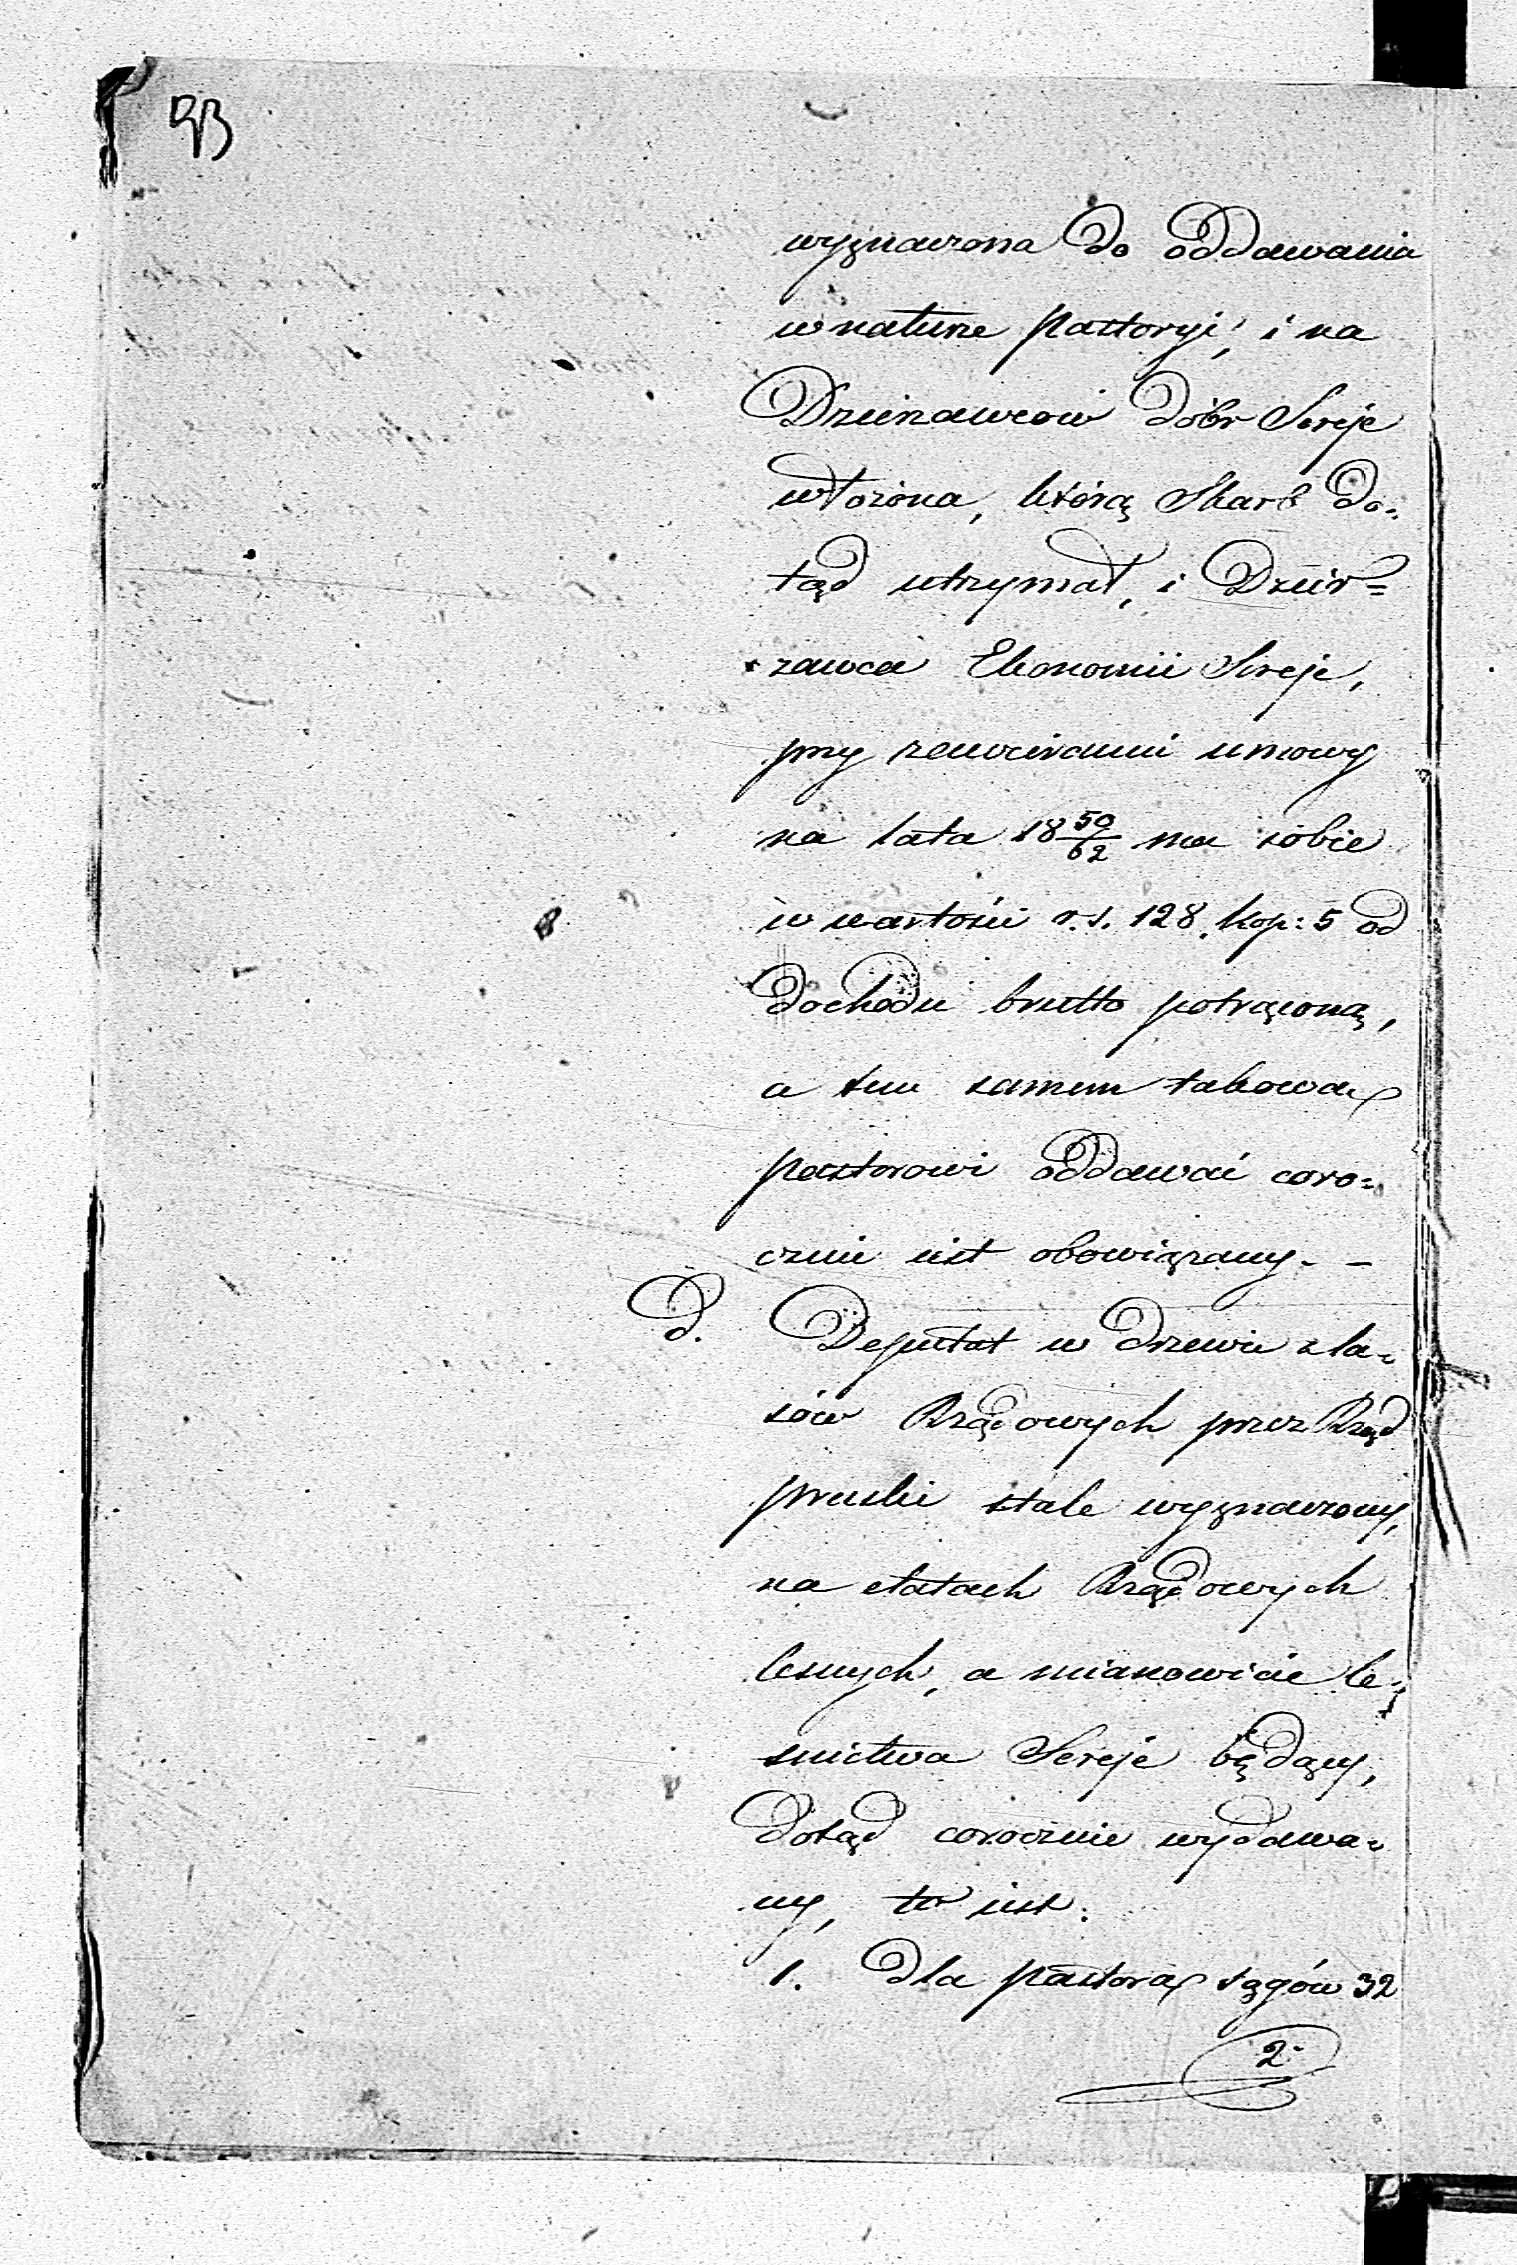 53
wyznaczona do oddawania
w naturze Pastoryi, i na
Dzierżawców Dóbr Sereje
włożona, którą Skarb do=
tąd utrzymał, i Dzier=
żawca Ekonomii Sereje,
przy zawieraniu umowy
na lata 18 50/62 ma sobie
w wartości r.s. 128. kop: 5 od
dochodu brutto potrąconą,
a tem samem takowa
pastorowi oddawać coro=
cznie iest obowiązany. –
d. Deputat w drzewie z la=
sów Rządowych przez Rząd
pruski stale wyznaczony,
na etatach Rządowych
lesnych, a mianowicie le=
snictwa Sereje będący,
dotąd corocznie wydawa=
ny, to iest:
1. dla pastora sągów 32
2